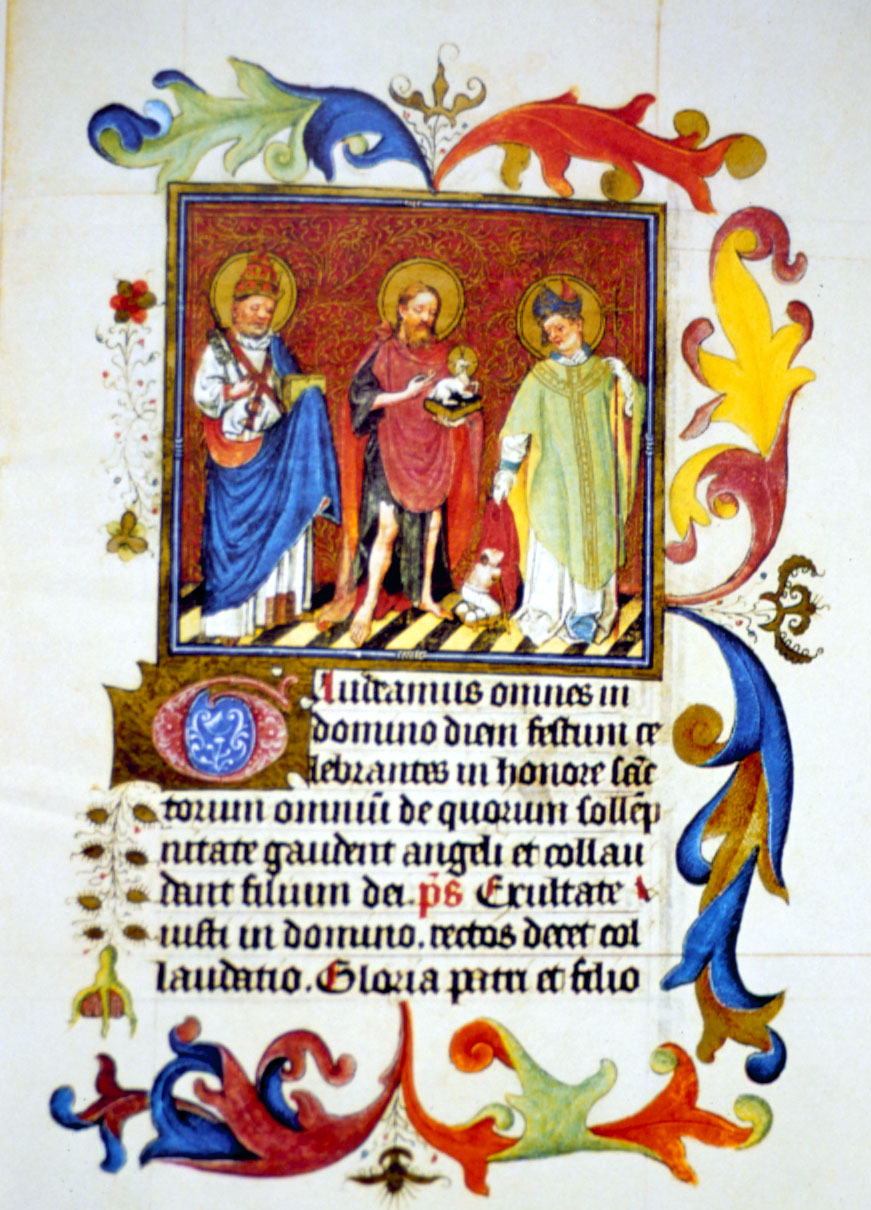 Gaudeamus omnes in
domino diem festum ce
lebrantes in honore sāc
torum omniū de quorum sollēp
nitate gaudent angeli et collau
dant filium dei. p̄s Exultate
iusti in domino. rectos decet col
laudatio. Gloria patri et filio